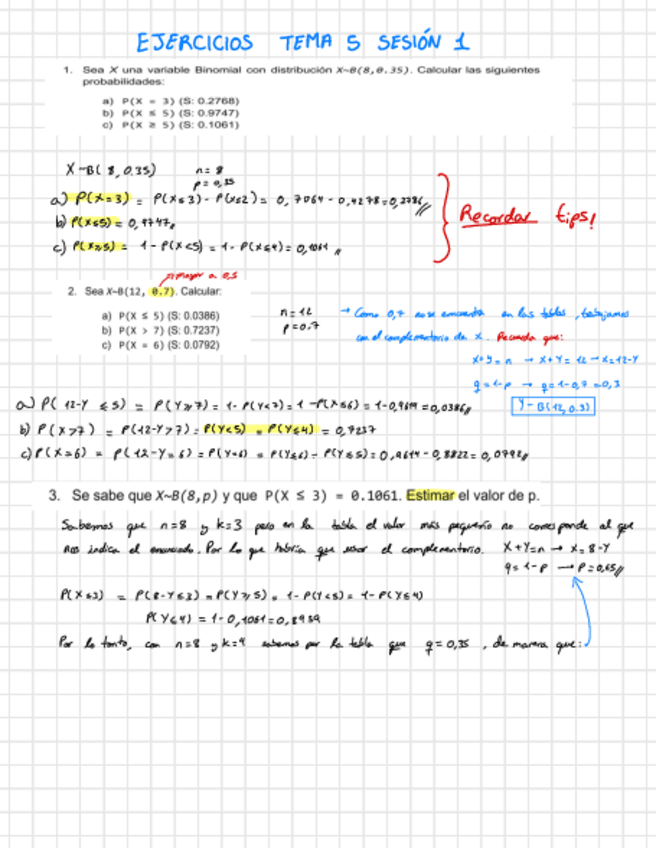 EJERCICIOS TEMA 5 SESIÓN 1
1. Sea X una variable Binomial con distribución X~B(8,0.35). Calcular las siguientes
probabilidades:
a) P(X = 3) (S: 0.2768)
b) P(X ≤ 5) (S: 0.9747)
c) P(X ≥ 5) (S: 0.1061)
X~B( 8, 0,35) n = 8
p = 0,35
a) P(X=3) = P(X≤3) - P(X≤2) = 0, 7064 - 0,4278 = 0,2786
b) P(X≤5) = 0, 9747
c) P(X≥5) = 1 - P(X<5) = 1 - P(X≤4) = 0,1061
Recordar tips!
mayor a 0,5
2. Sea X~B(12, 0.7). Calcular:
a) P(X ≤ 5) (S: 0.0386)
b) P(X > 7) (S: 0.7237)
c) P(X = 6) (S: 0.0792)
n = 12
p = 0.7
→ Como 0,7 no se encuentra en las tablas, trabajamos
con el complementario de X. Recuerda que:
X+Y = n → X+Y = 12 → X = 12-Y
q = 1-p → q = 1-0,7 = 0,3
Y~B(12, 0.3)
a) P( 12-Y ≤ 5) = P( Y≥7) = 1- P(Y<7) = 1 -P(X≤6) = 1-0,9614 = 0,0386
b) P(X>7) = P(12-Y>7) = P(Y<5) = P(Y≤4) = 0,7237
c) P(X=6) = P( 12-Y = 6) = P(Y=6) = P(Y≤6) - P(Y≤5) = 0,9614 - 0,8822 = 0,0792
3. Se sabe que X~B(8,p) y que P(X ≤ 3) = 0.1061. Estimar el valor de p.
Sabemos que n=8 y k=3 pero en la tabla el valor más pequeño no corresponde al que
nos indica el enunciado. Por lo que habría que usar el complementario. X+Y=n → X=8-Y
q = 1-p → p = 0,65
P(X≤3) = P(8-Y≤3) = P(Y≥5) = 1-P(Y<5) = 1-P(Y≤4)
P(Y≤4) = 1-0,1061 = 0,8939
Por lo tanto, con n=8 y k=4 sabemos por la tabla que q = 0,35 , de manera que: